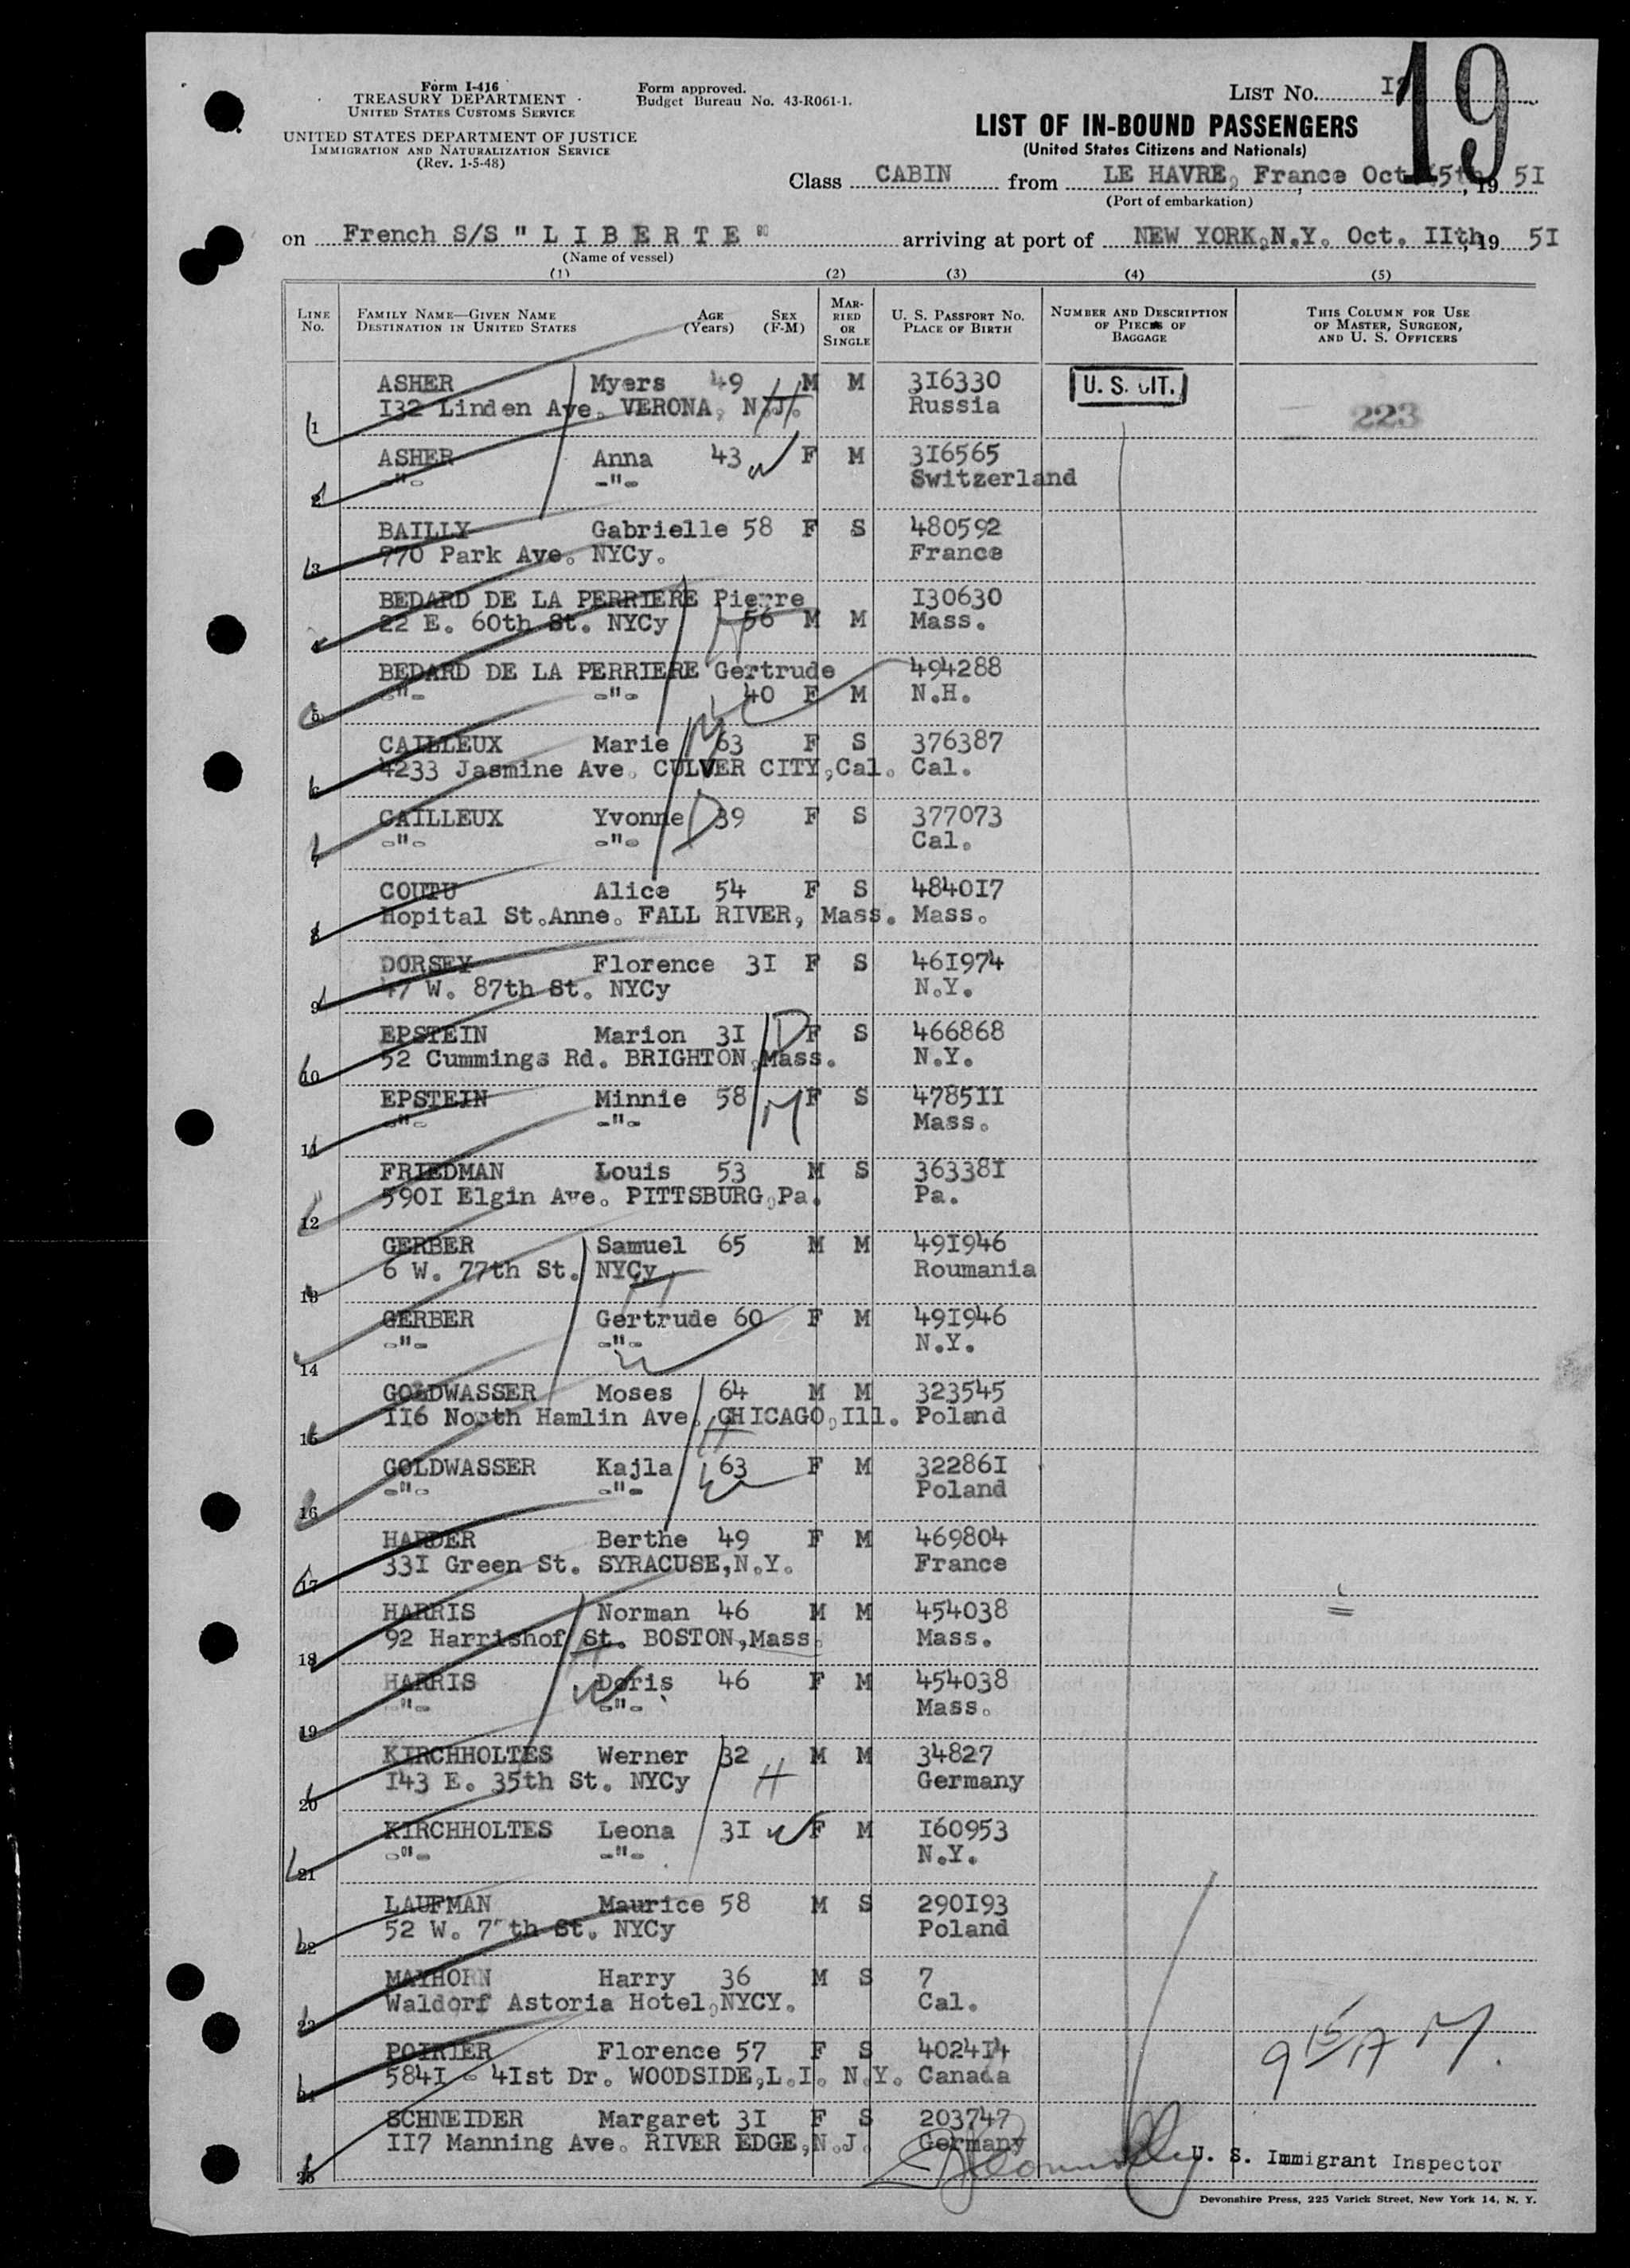 Form I-416
TREASURY DEPARTMENT
UNITED STATES CUSTOMS SERVICE
UNITED STATES DEPARTMENT OF JUSTICE
IMMIGRATION AND NATURALIZATION SERVICE
(Rev. 1-5-48)
Form approved.
Budget Bureau No. 43-R061-1.
LIST No.
19
LIST OF IN-BOUND PASSENGERS
(United States Citizens and Nationals)
Class CABIN from LE HAVRE, France Oct. 5th, 19 5I
(Port of embarkation)
on French S/S " L I B E R T E " arriving at port of NEW YORK,N.Y. Oct. IIth, 19 5I
(Name of vessel)
(1) (2) (3) (4) (5)
LINE No. FAMILY NAME—GIVEN NAME DESTINATION IN UNITED STATES AGE (Years) SEX (F-M) MARRIED OR SINGLE U. S. PASSPORT No. PLACE OF BIRTH NUMBER AND DESCRIPTION OF PIECES OF BAGGAGE THIS COLUMN FOR USE OF MASTER, SURGEON, AND U. S. OFFICERS
ASHER Myers 49 M M 3I6330 U. S. CIT.
1 I32 Linden Ave. VERONA, N.J. Russia 223
ASHER Anna 43 F M 3I6565
2 -"- -"- Switzerland
BAILLY Gabrielle 58 F S 480592
3 770 Park Ave. NYCy. France
BEDARD DE LA PERRIERE Pierre I30630
4 22 E. 60th St. NYCy 56 M M Mass.
BEDARD DE LA PERRIERE Gertrude 494288
5 -"- -"- 40 F M N.H.
CAILLEUX Marie 63 F S 376387
6 4233 Jasmine Ave. CULVER CITY,Cal. Cal.
CAILLEUX Yvonne 39 F S 377073
7 -"- -"- Cal.
COUTU Alice 54 F S 4840I7
8 Hopital St.Anne. FALL RIVER, Mass. Mass.
DORSEY Florence 3I F S 46I974
9 47 W. 87th St. NYCy N.Y.
EPSTEIN Marion 3I F S 466868
10 52 Cummings Rd. BRIGHTON,Mass. N.Y.
EPSTEIN Minnie 58 F S 4785II
11 -"- -"- Mass.
FRIEDMAN Louis 53 M S 36338I
12 590I Elgin Ave. PITTSBURG,Pa. Pa.
GERBER Samuel 65 M M 49I946
13 6 W. 77th St. NYCy Roumania
GERBER Gertrude 60 F M 49I946
14 -"- -"- N.Y.
GOLDWASSER Moses 64 M M 323545
15 II6 North Hamlin Ave. CHICAGO,Ill. Poland
GOLDWASSER Kajla 63 F M 32286I
16 -"- -"- Poland
HARDER Berthe 49 F M 469804
17 33I Green St. SYRACUSE,N.Y. France
HARRIS Norman 46 M M 454038
18 92 Harrishof St. BOSTON,Mass. Mass.
HARRIS Doris 46 F M 454038
19 -"- -"- Mass.
KIRCHHOLTES Werner 32 M M 34827
20 I43 E. 35th St. NYCy Germany
KIRCHHOLTES Leona 3I F M I60953
21 -"- -"- N.Y.
LAUFMAN Maurice 58 M S 290I93
22 52 W. St. NYCy Poland
MAYHORN Harry 36 M S 7
23 Waldorf Astoria Hotel,NYCY. Cal.
POIRIER Florence 57 F S 4024I4
24 584I - 4Ist Dr. WOODSIDE,L.I. N.Y. Canada
9 15 A M.
SCHNEIDER Margaret 3I F S 203747
25 II7 Manning Ave. RIVER EDGE,N.J. Germany
U. S. Immigrant Inspector
Devonshire Press, 225 Varick Street, New York 14, N. Y.